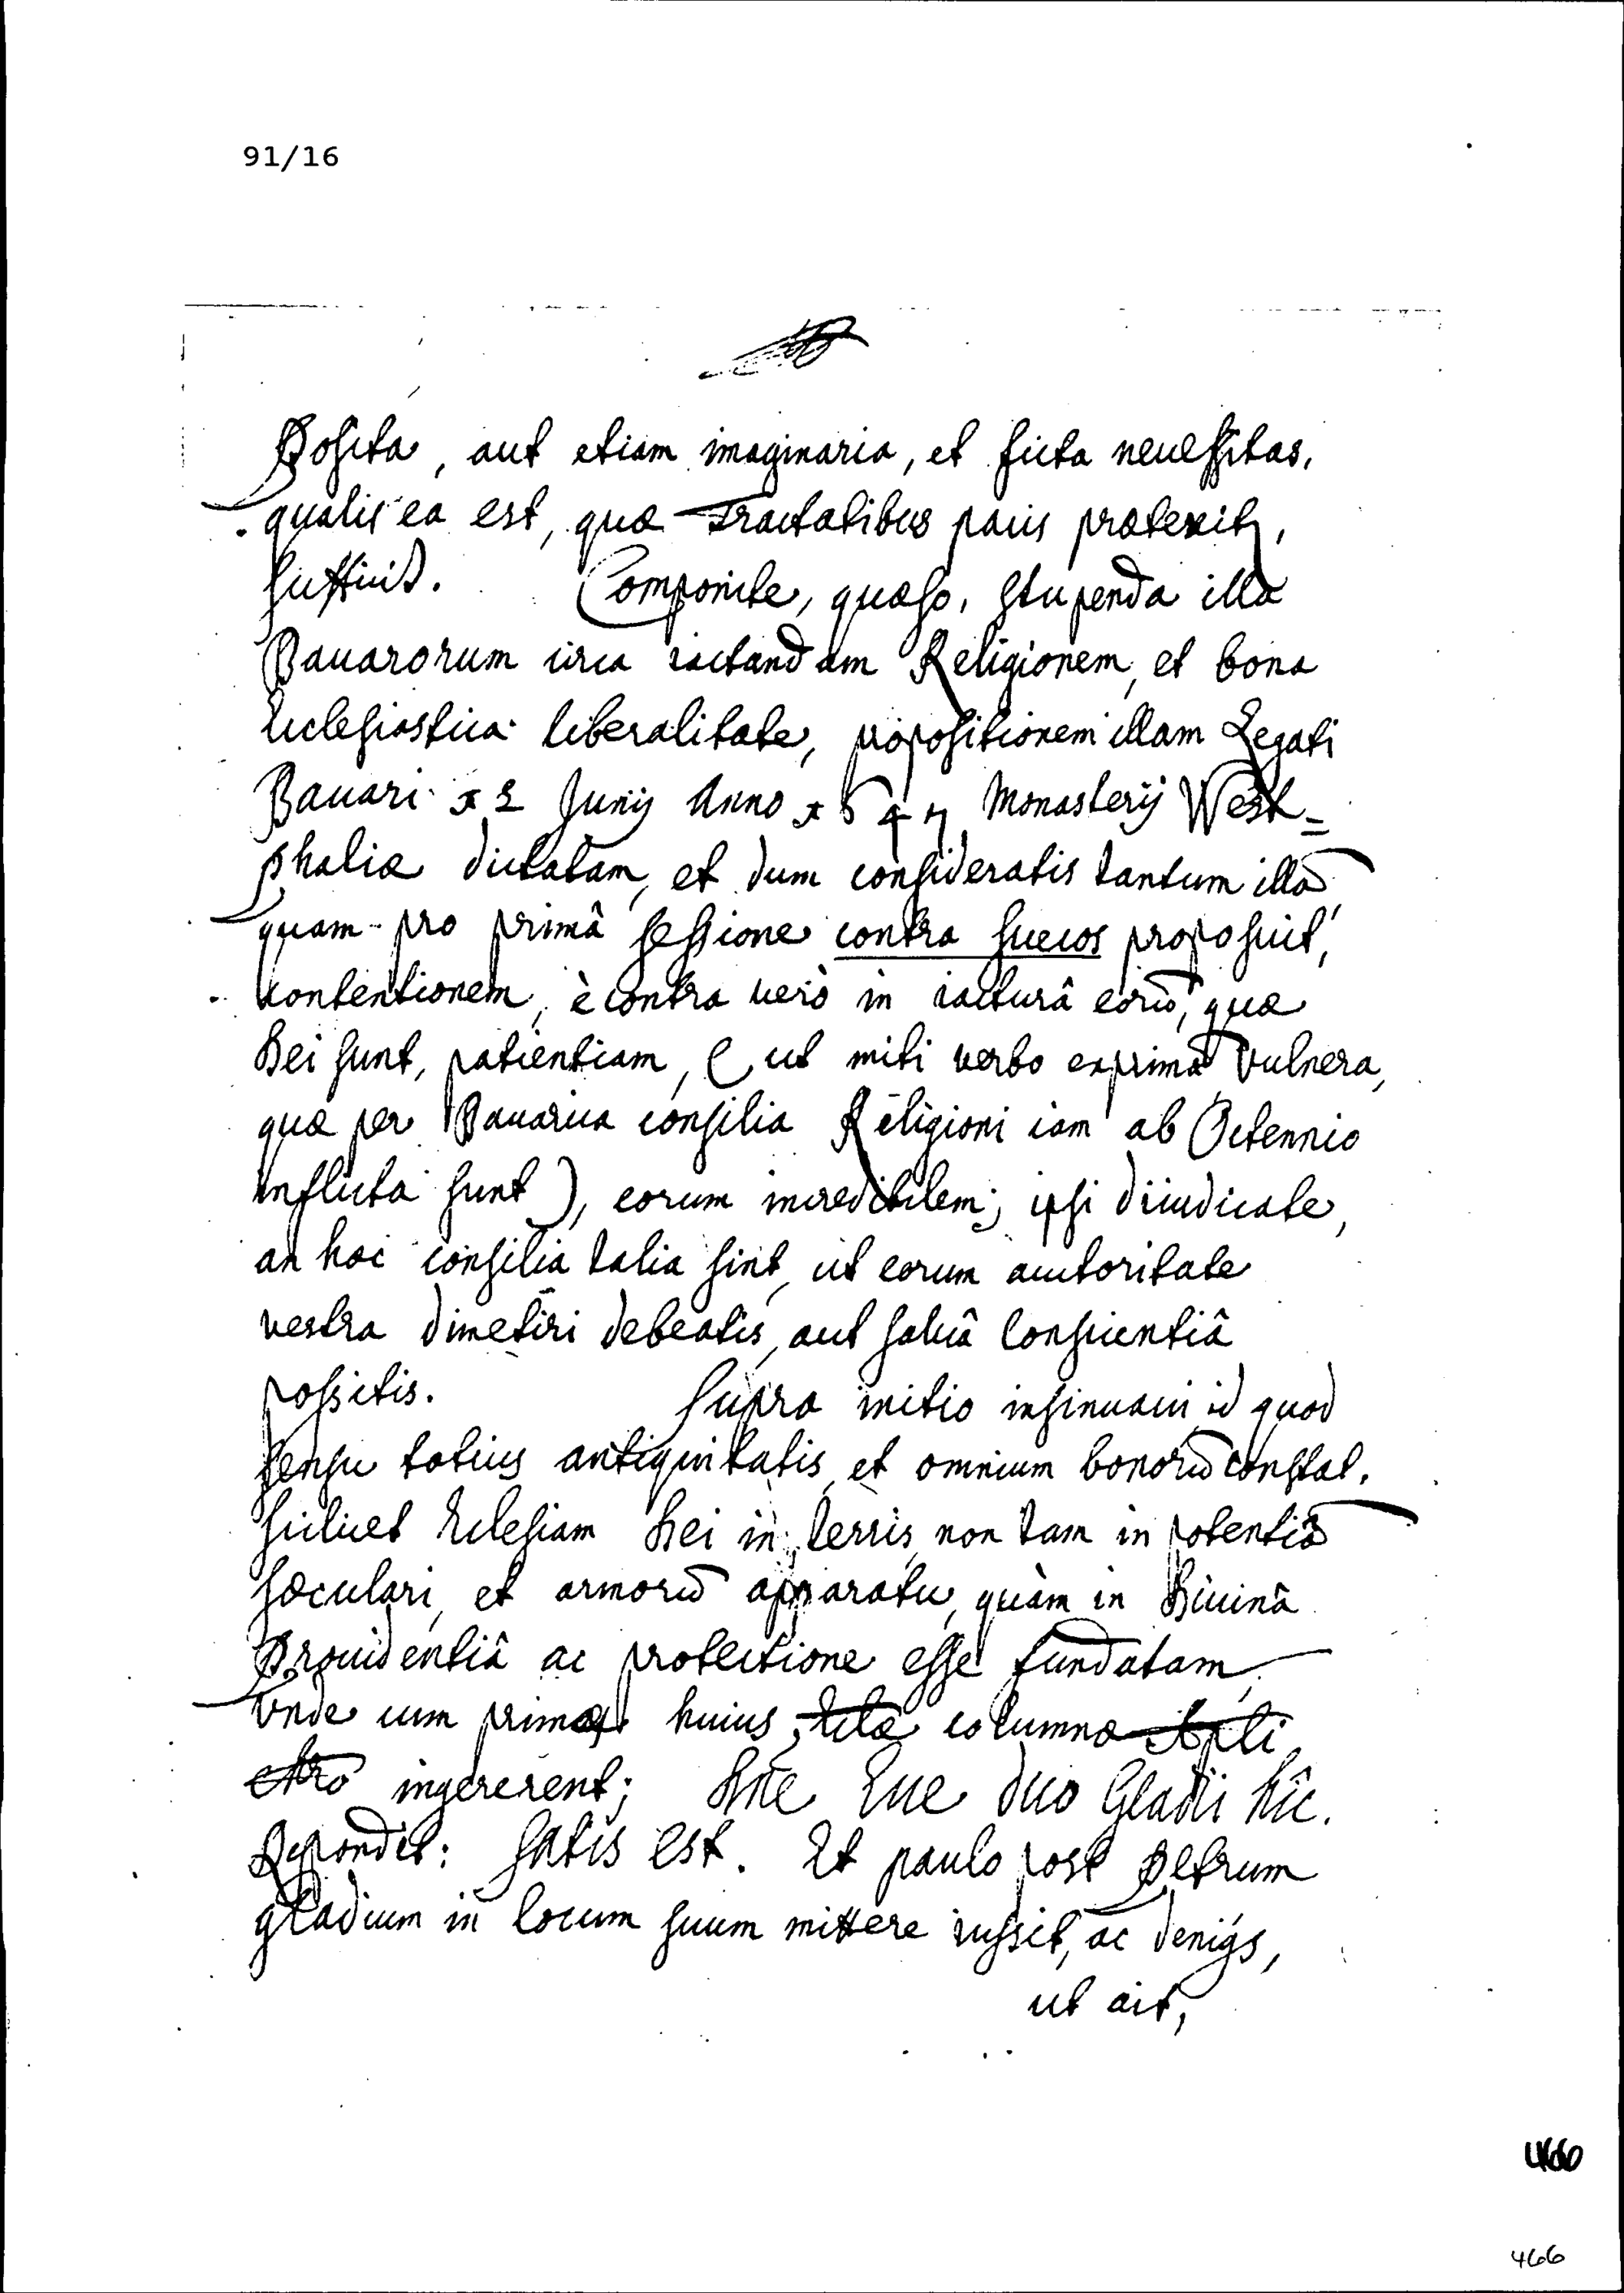 91/16
Posita, aut etiam imaginaria, et ficta necessitas,
qualis ea est, quæ Tractatibus pacis prætexit,
sufficit. Componite, quæso, stupenda illa
Bauarorum circa iactandam Religionem, et bona
Ecclesiastica liberalitate, propositionem illam Legati
Bauari 12 Junij Anno 1647 Monasterij West-
phaliæ dictatam, et dum consideratis tantum illā
quam pro primâ sessione contra suecos proposuit,
contentionem, è contra verò in iacturâ eorū, quæ
Dei sunt, patientiam, (ut miti verbo exprimā vulnera,
quæ per Bauarica consilia Religioni iam ab Octennio
inflicta sunt), eorum incredibilem; ipsi diiudicate,
an hæc consilia talia sint, ut eorum auctoritate
vestra dimetiri debeatis, aut saluâ Conscientiâ
possitis. Supra initio insinuaui id quod
sensu totius antiquitatis, et omnium bonorū constat,
scilicet Ecclesiam Dei in terris, non tam in potentiâ
sæculari, et armorū apparatu, quàm in Diuinâ
Prouidentiâ ac protectione esse fundatam,
Vnde cum primæ huius Eclæ columnæ Apli
Chrō ingererent; Dn̄e Ecce duo Gladii hîc.
Respondit: Satis est. Et paulo post Petrum
gladium in locum suum mittere iussit, ac deniqs,
ut ait,
466
466